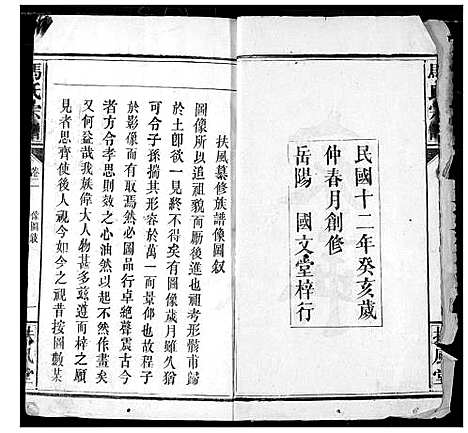 民國十二年癸亥歲
仲春月創修
岳陽 國文堂梓行
扶風堂
扶風纂修族譜像圖叙
圖像所以追祖貌而勵後進也祖考形骸甫歸
於土即欲一見終不得矣有圖像歲月雖久猶
可令子孫揣其形似於萬一而景仰也故程子
於影像而有取焉然必圖品行卓絶聲震古今
者方令孝思則效之心油然以起不然作畫矣
又何益哉我族偉大人物甚多茲追而梓之願
見者思齊使後人視今如今之視昔按圖數某
馬氏宗譜
卷一
像圖叙
一
扶風堂